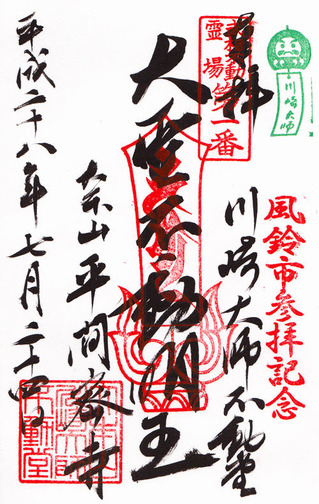 奉拝
川崎大師
風鈴市参拝記念
川崎大師不動堂
霊場第一番
大聖不動明王
金剛山平間寺
平成二十八年七月二十四日
不動堂